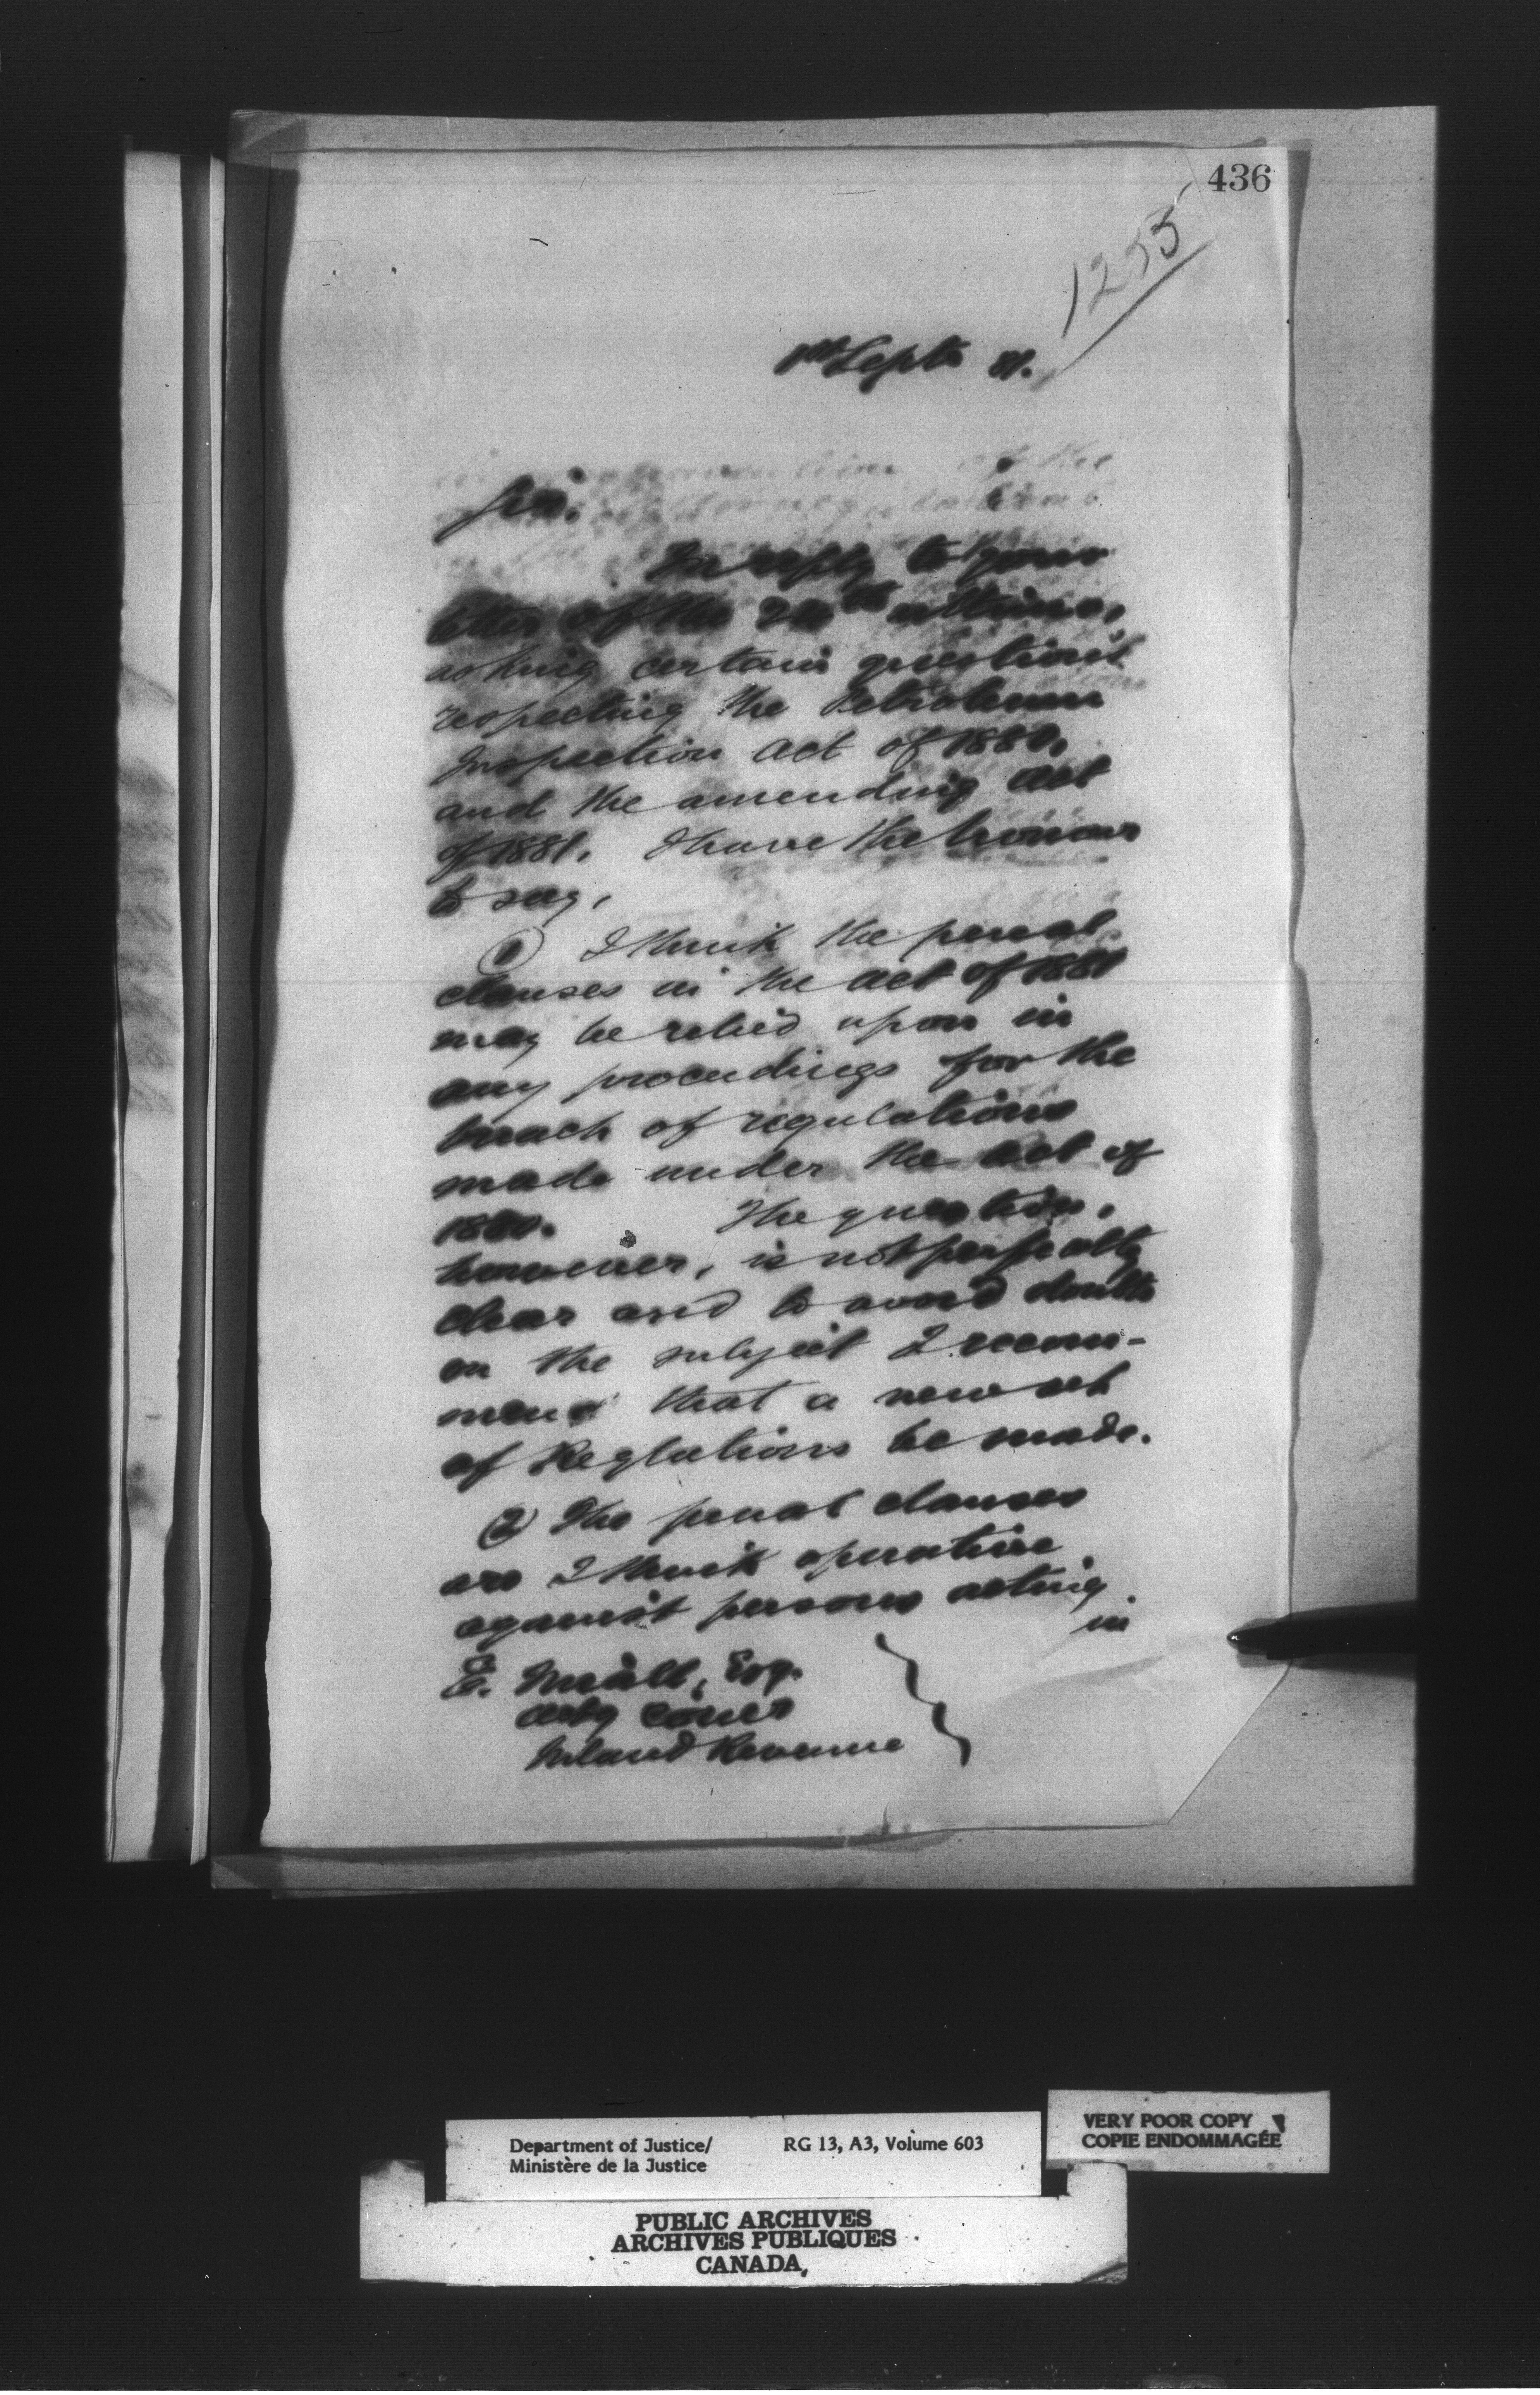 436
1255
1st Septr 81.
Sir,
In reply to your
letter of the ultimo,
asking certain questions
respecting the Petroleum
Inspection Act of 1880,
and the amending Act
of 1881, I have the honour
to say,
(1) I think the penal
clauses in the Act of 1881
may be relied upon in
any proceedings for the
breach of regulations
made under the Act of
1880. The question,
however, is not perfectly
clear and to avoid doubts
on the subject I recom-
mend that a new set
of Reglations be made.
(2) The penal clauses
are I think operative
against persons acting
in
E. Miall, Esq.
Actg Comr
Inland Revenue
Department of Justice/ RG 13, A3, Volume 603
Ministère de la Justice
VERY POOR COPY
COPIE ENDOMMAGÉE
PUBLIC ARCHIVES
ARCHIVES PUBLIQUES
CANADA